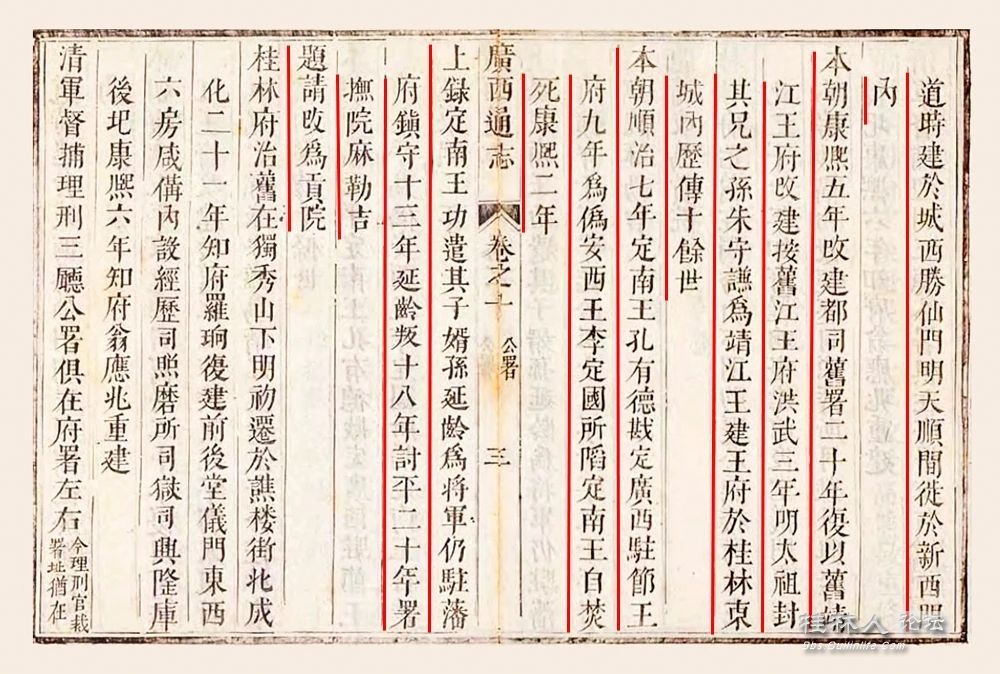 道時建於城西勝仙門明天順間徙於新西門
內
本朝康熙五年改建都司舊署二十年復以舊靖
江王府改建按舊江王府洪武三年明太祖封
其兄之孫朱守謙為靖江王建王府於桂林東
城內歷傳十餘世
本朝順治七年定南王孔有德戡定廣西駐節王
府九年為偽安西王李定國所陷定南王自焚
死康熙二年
廣西通志 卷之十 公署 三
上録定南王功遣其子婿孫延齡為将軍仍駐藩
府鎮守十三年延齡叛十八年討平二十年署
撫院麻勒吉
題請改為貢院
桂林府治舊在獨秀山下明初遷於譙楼街北成
化二十一年知府羅珦復建前後堂儀門東西
六房咸備內設經歷司照磨所司獄司興隆庫
後圮康熙六年知府翁應兆重建
清軍督捕理刑三廳公署俱在府署左右今理刑官裁
署址猶在
桂林人 论坛
Bbs.Guilinlife.Com